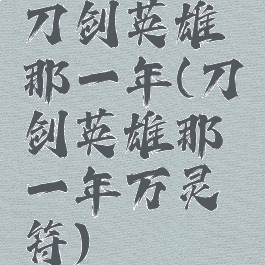 刀剑英雄
那一年(刀
剑英雄那
一年万灵
符)